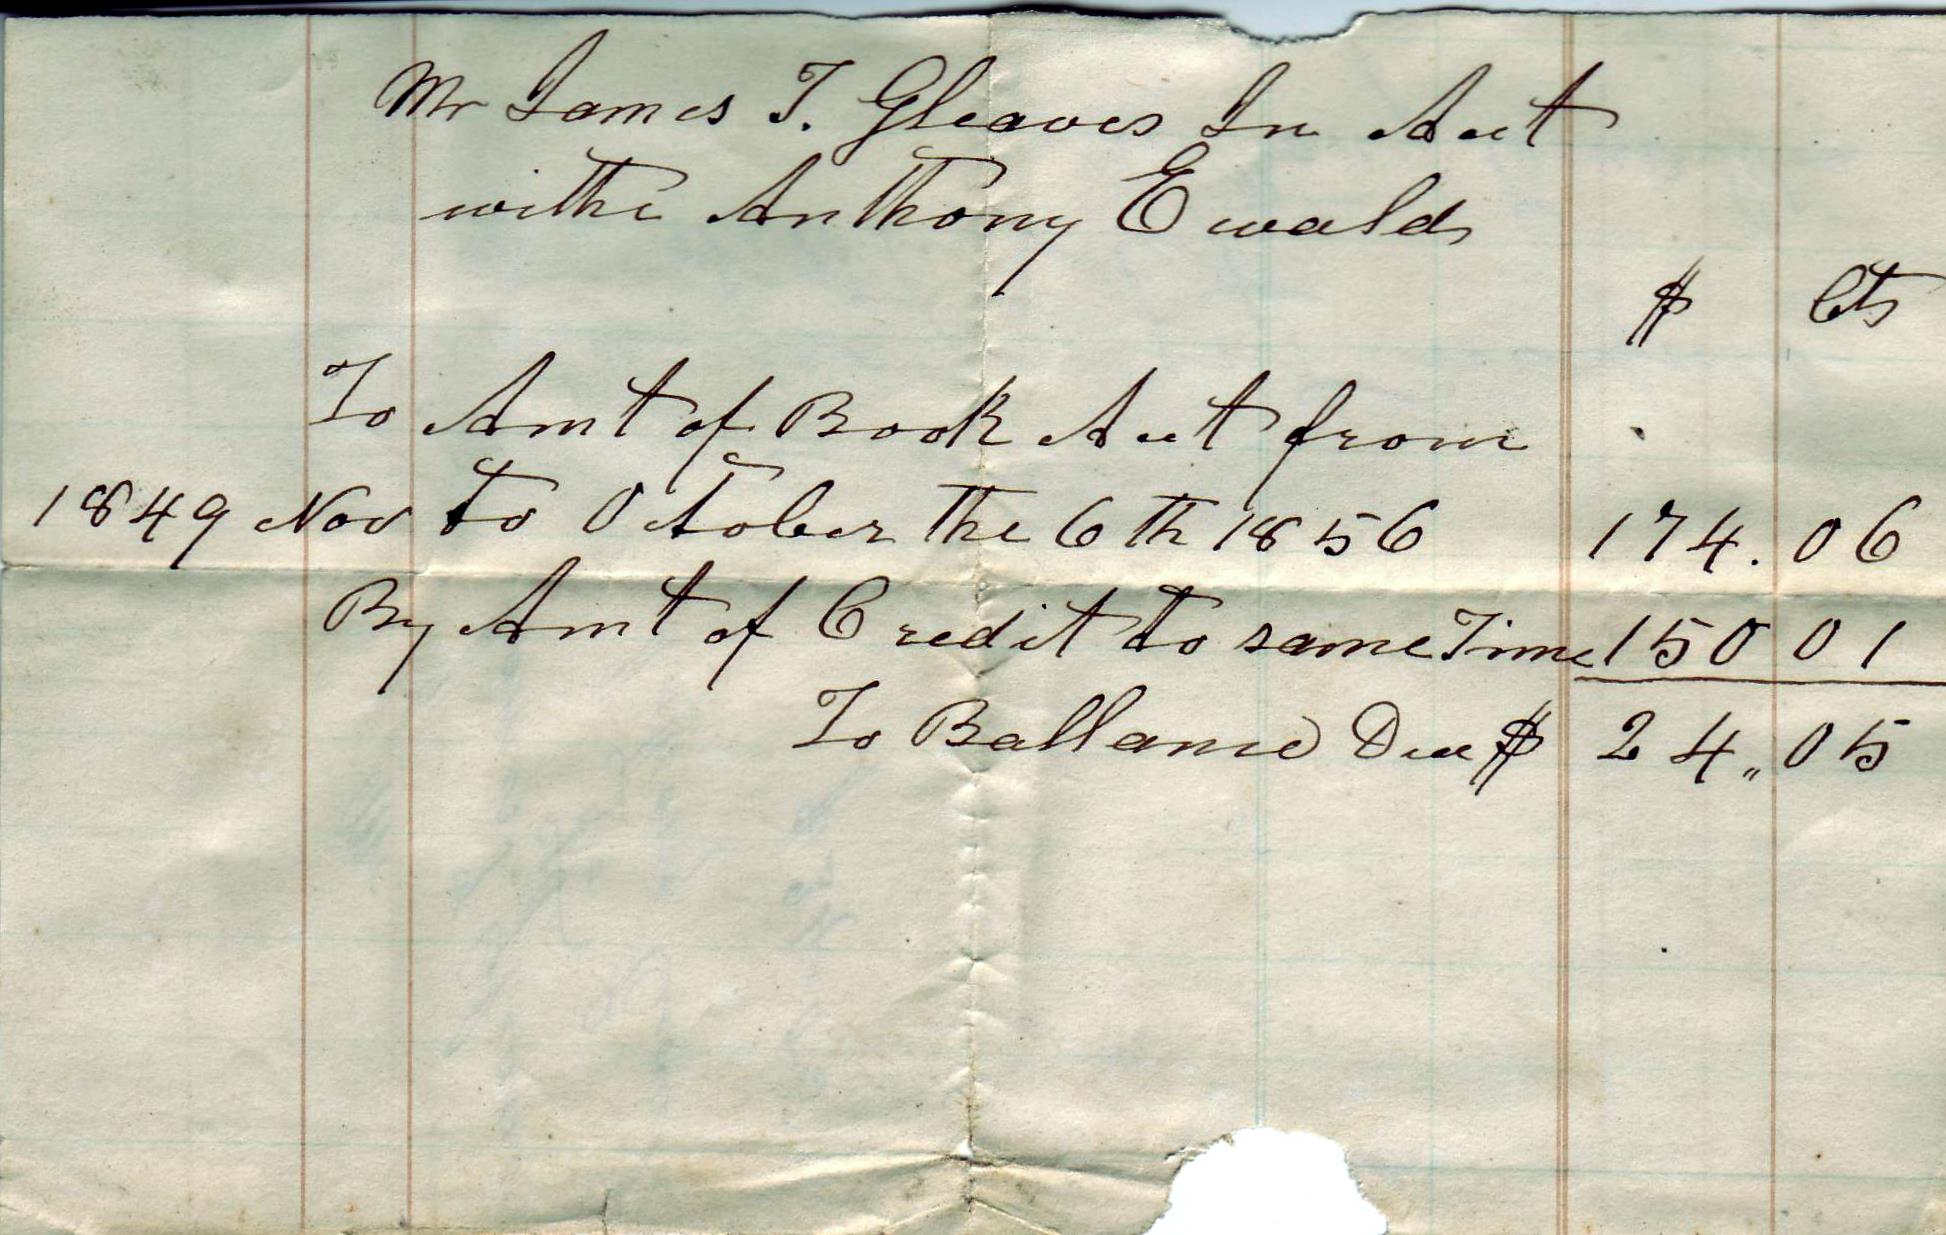 Mr James T. Gleaves In Acct
withe Anthony Ewald
$ Cts
To Amt of Book Acct from
1849 Nov to October the 6th 1856 174.06
By Amt of Credit to same Time 150 01
To Ballance Due $ 24,,05